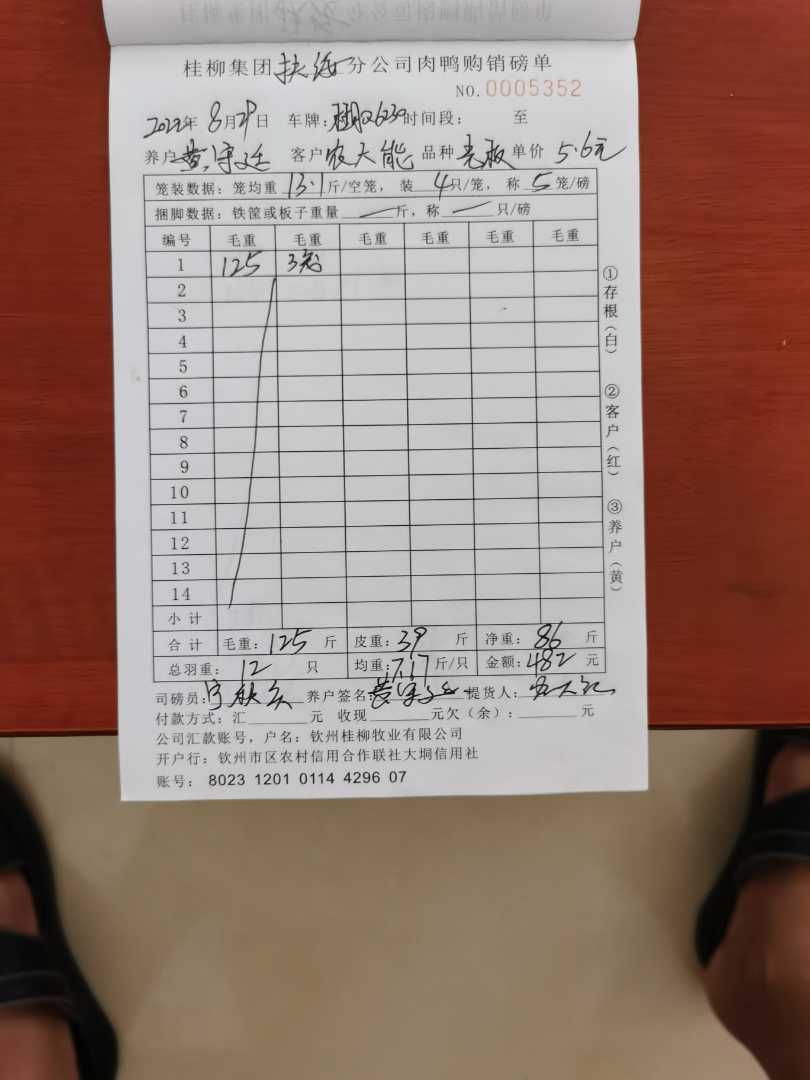 桂柳集团扶绥分公司肉鸭购销磅单
NO.0005352
2022年 8月29日 车牌: 时间段: 至
养户 黄守廷 客户 农大能 品种 壳板 单价 5.6元
笼装数据: 笼均重 13.1 斤/空笼, 装 4 只/笼, 称 5 笼/磅
捆脚数据: 铁筐或板子重量 — 斤, 称 — 只/磅
编号 毛重 毛重 毛重 毛重 毛重 毛重
1 125 3笼
2
3
4
5
6
7
8
9
10
11
12
13
14
小计
合计 毛重: 125 斤 皮重: 39 斤 净重: 86 斤
总羽重: 12 只 均重: 7.17 斤/只 金额: 482 元
司磅员: 养户签名: 提货人:
付款方式: 汇 元 收现 元欠(余): 元
公司汇款账号, 户名: 钦州桂柳牧业有限公司
开户行: 钦州市区农村信用合作联社大垌信用社
账号: 8023 1201 0114 4296 07
①存根(白)
②客户(红)
③养户(黄)